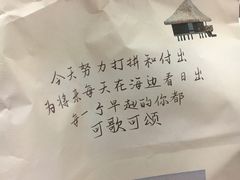 今天努力打拼和付出
为将来每天在海边看日出
每一个早起的你都
可歌可颂